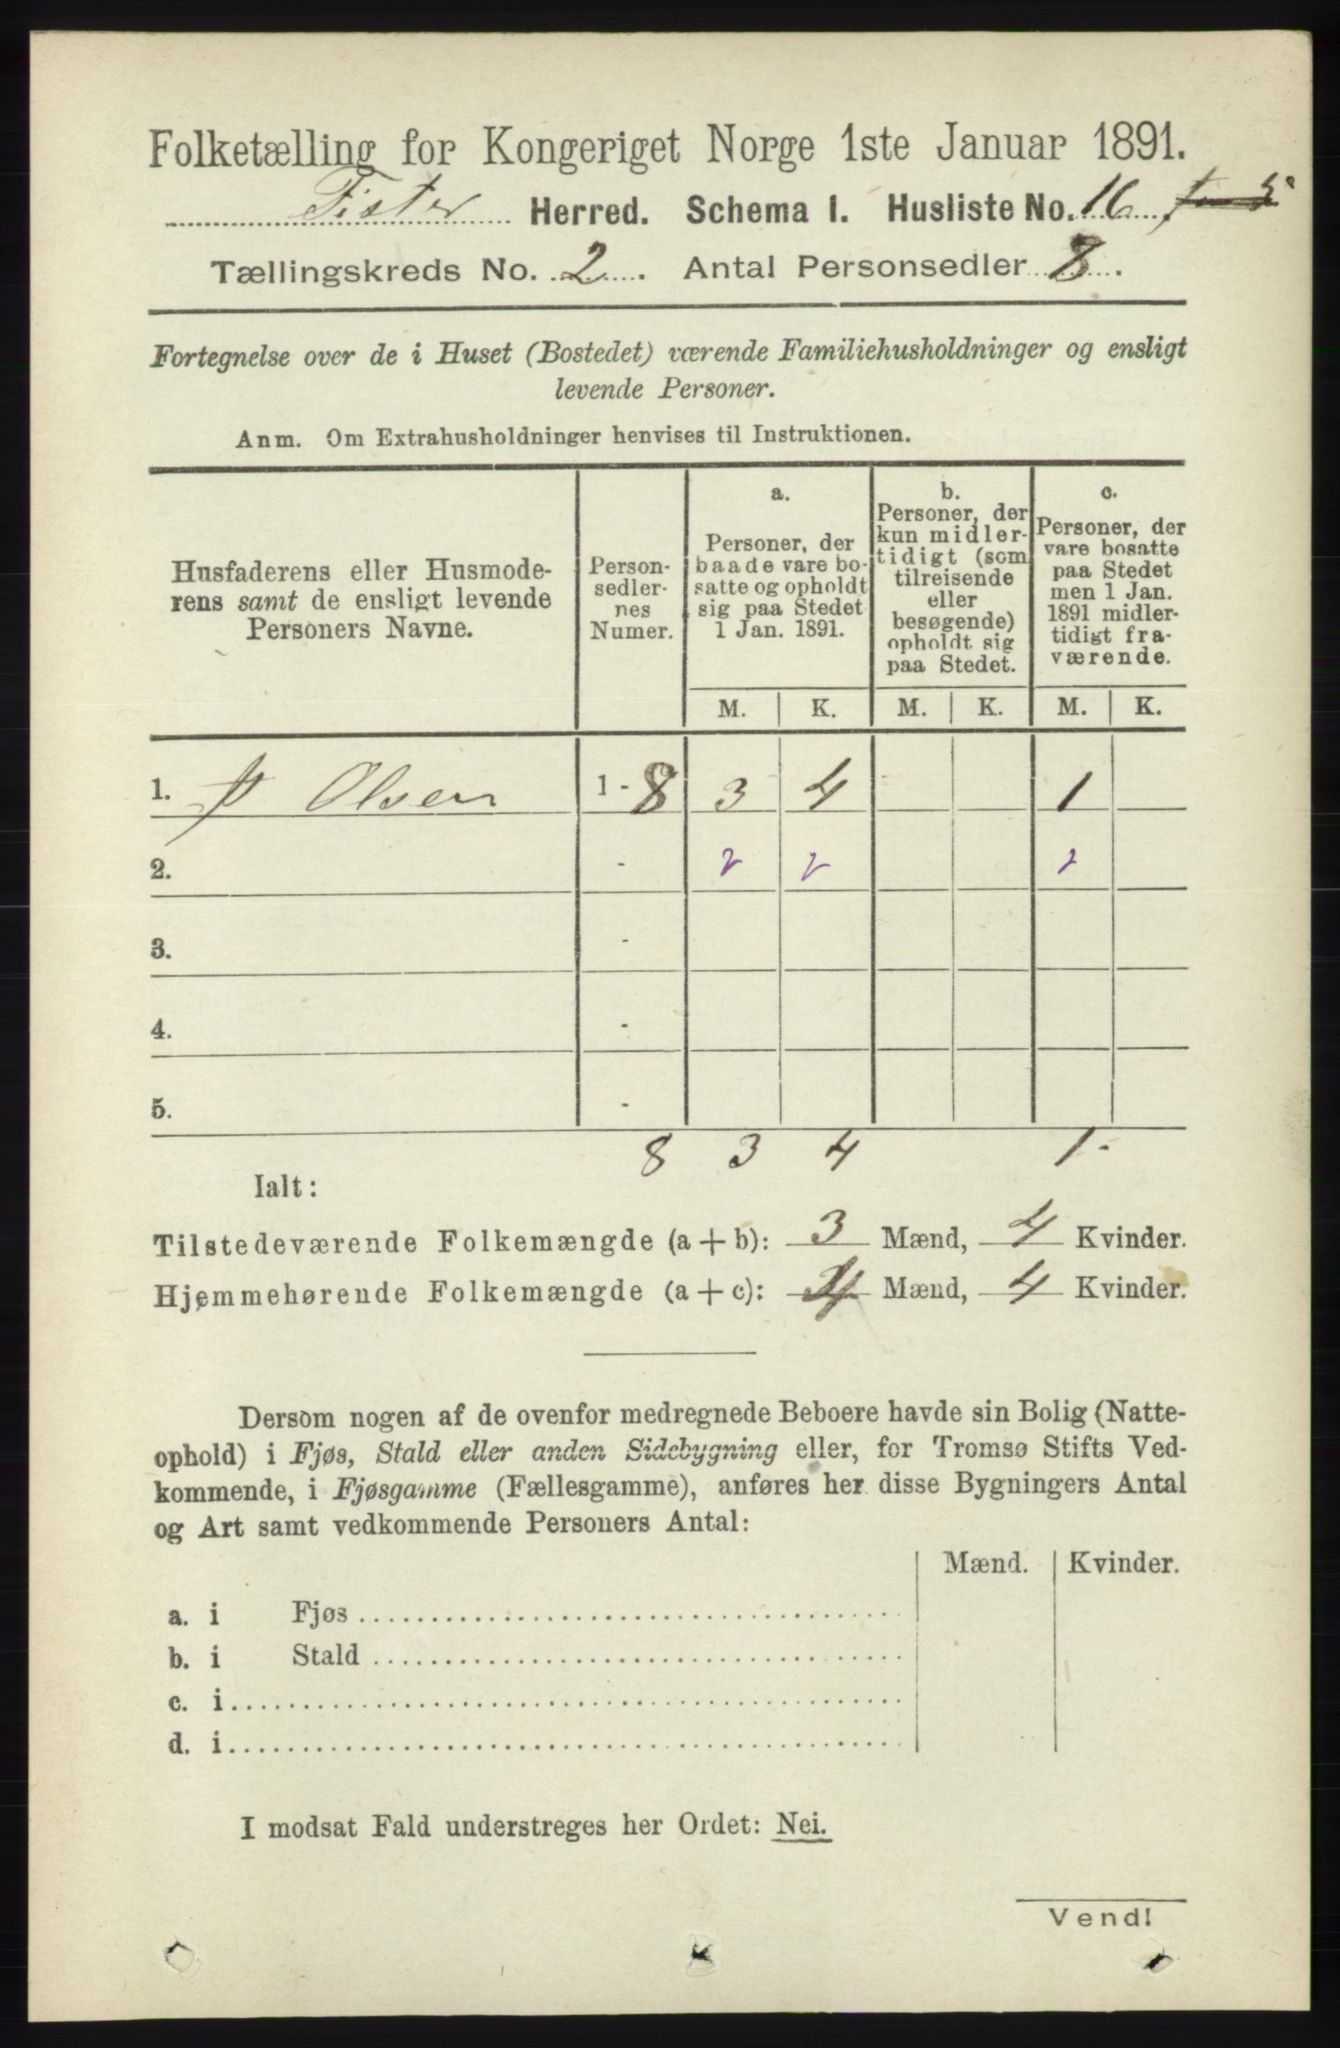 Folketælling for Kongeriget Norge 1ste Januar 1891.
Fister Herred. Schema I. Husliste No. 16
Tællingskreds No. 2. Antal Personsedler 8.
Fortegnelse over de i Huset (Bostedet) værende Familiehusholdninger og ensligt
levende Personer.
Anm. Om Extrahusholdninger henvises til Instruktionen.
Husfaderens eller Husmode-
rens samt de ensligt levende
Personers Navne.
Person-
sedler-
nes
Numer.
a.
Personer, der
baade vare bo-
satte og opholdt
sig paa Stedet
1 Jan. 1891.
b.
Personer, der
kun midler-
tidigt (som
tilreisende
eller
besøgende)
opholdt sig
paa Stedet.
c.
Personer, der
vare bosatte
paa Stedet
men 1 Jan.
1891 midler-
tidigt fra-
værende.
M. K. M. K. M. K.
1. Olsen 1 - 8 3 4 1
2. -
3. -
4. -
5. -
8 3 4 1-
Ialt:
Tilstedeværende Folkemængde (a + b): 3 Mænd, 4 Kvinder.
Hjemmehørende Folkemængde (a + c): 4 Mænd, 4 Kvinder.
Dersom nogen af de ovenfor medregnede Beboere havde sin Bolig (Natte-
ophold) i Fjøs, Stald eller anden Sidebygning eller, for Tromsø Stifts Ved-
kommende, i Fjøsgamme (Fællesgamme), anføres her disse Bygningers Antal
og Art samt vedkommende Personers Antal:
Mænd. Kvinder.
a. i Fjøs
b. i Stald
c. i
d. i
I modsat Fald understreges her Ordet: Nei.
Vend!